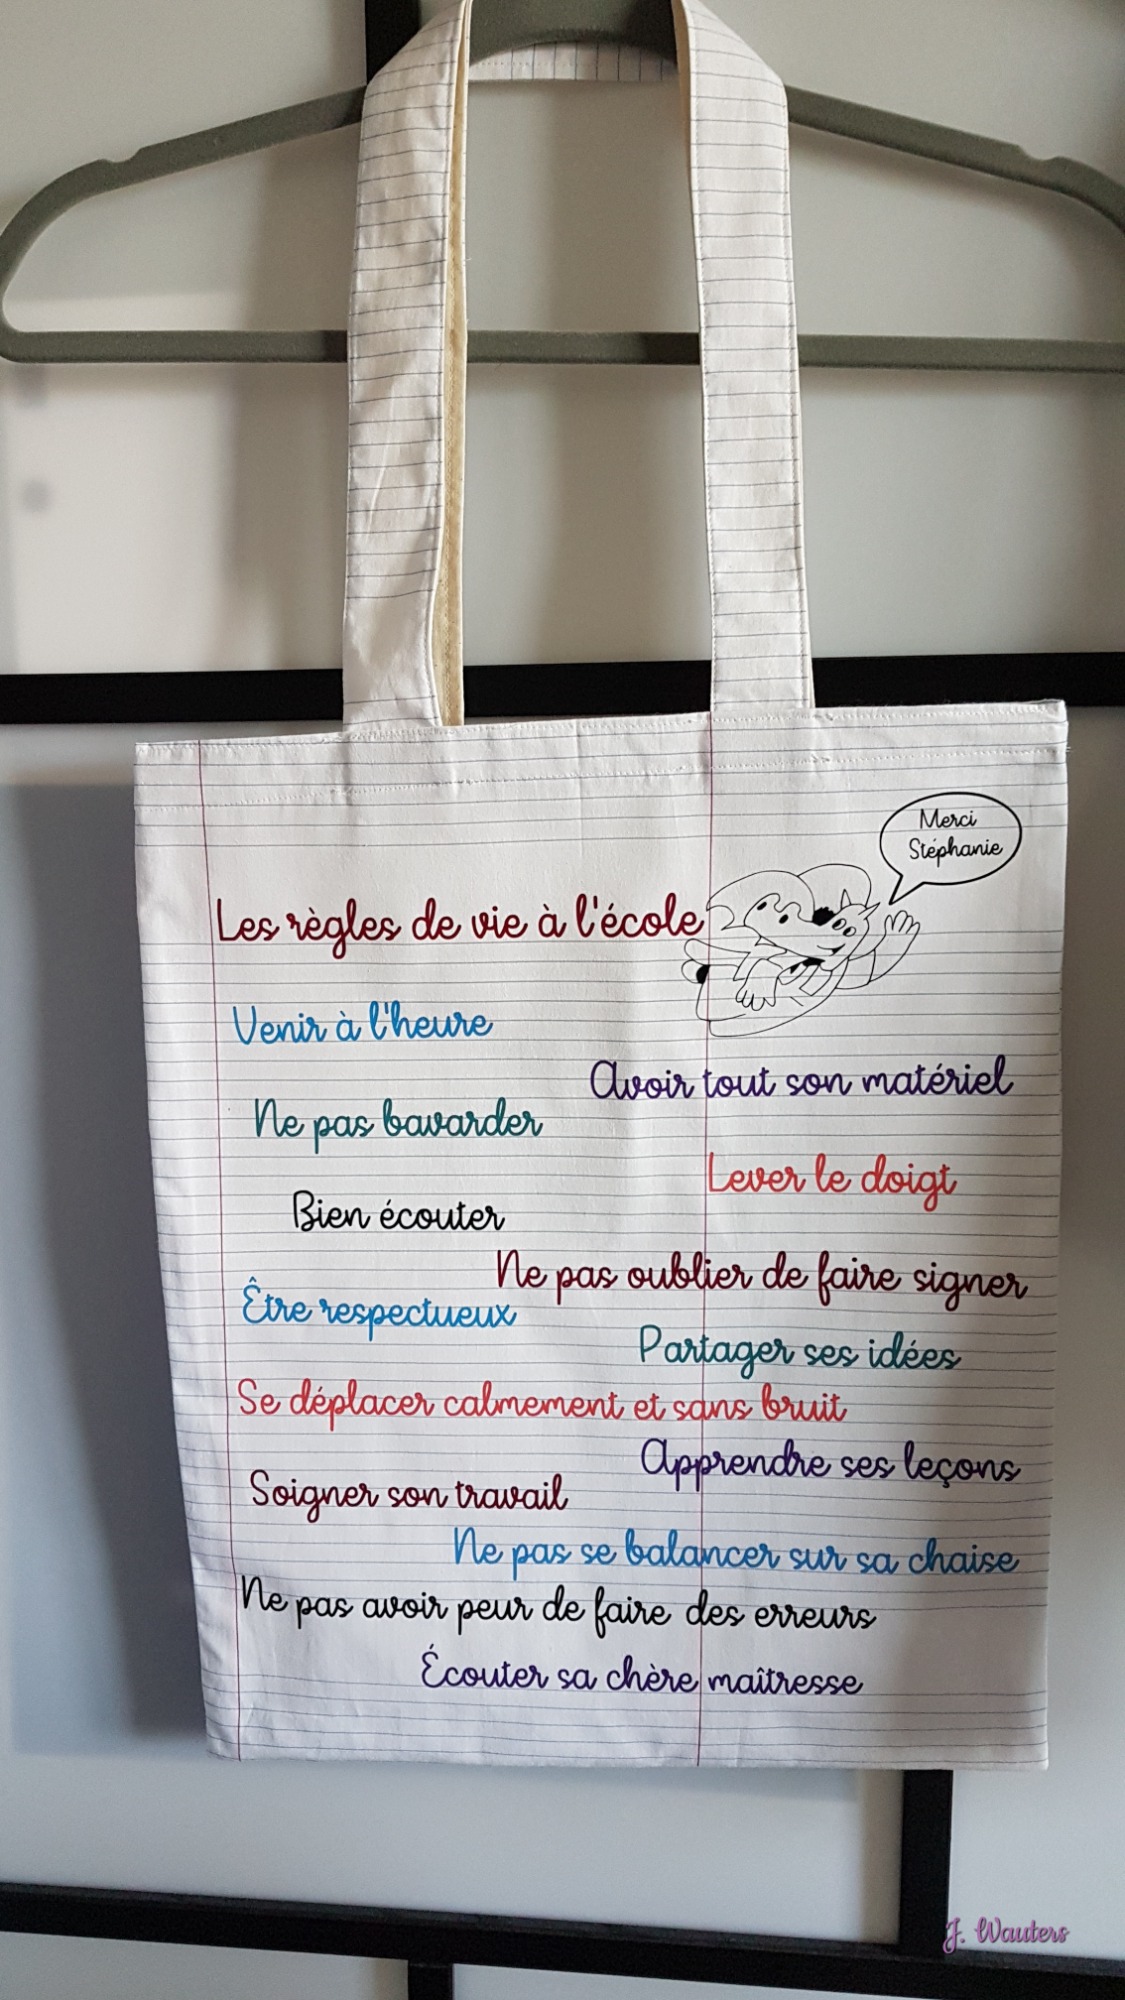 Merci
Stéphanie
Les règles de vie à l'école
Venir à l'heure
Avoir tout son matériel
Ne pas bavarder
Lever le doigt
Bien écouter
Ne pas oublier de faire signer
Être respectueux
Partager ses idées
Se déplacer calmement et sans bruit
Apprendre ses leçons
Soigner son travail
Ne pas se balancer sur sa chaise
Ne pas avoir peur de faire des erreurs
Écouter sa chère maîtresse
J. Wauters